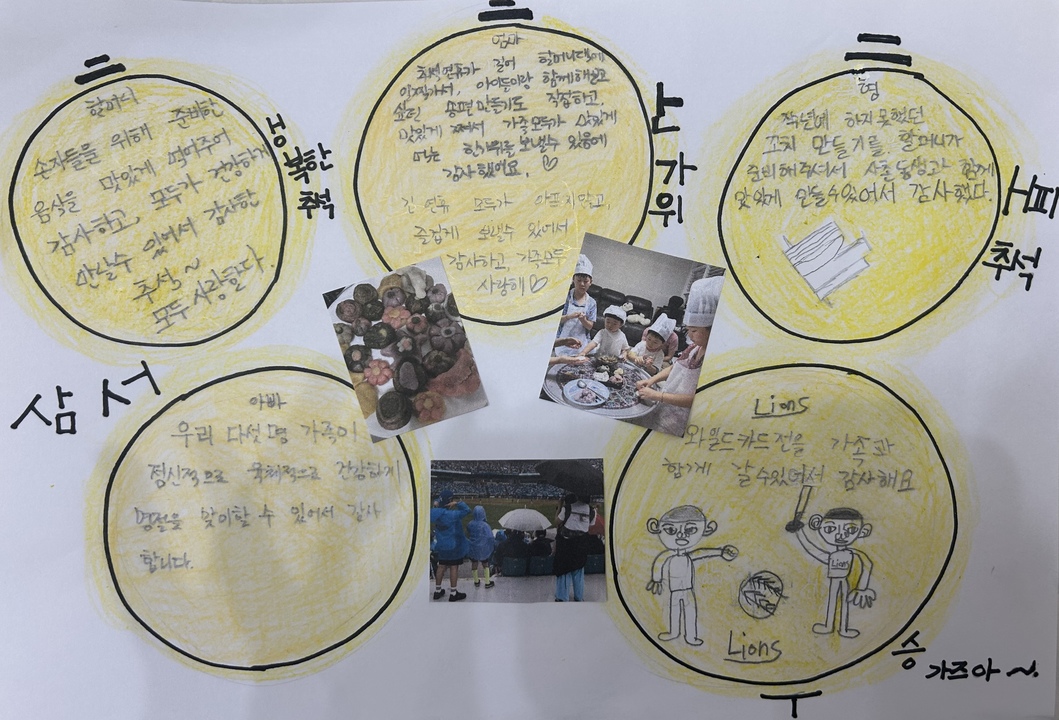 할머니
손자들을 위해 준비한
음식을 맛있게 먹어주어
감사하고, 모두가 건강하게
만날수 있어서 감사한
추석~
모두 사랑한다.
행복한
추석
엄마
추석연휴가 길어 할머니댁에
일찍가서, 아이들이랑 함께해보고
싶던 송편만들기도 직접하고,
맛있게 쪄서 가족모두가 맛있게
먹는 한가위를 보낼수 있음에
감사했어요. ♡
긴 연휴 모두가 아프지않고,
즐겁게 보낼수 있어서
감사하고, 가족모두
사랑해♡
한
가
위
형
작년에 하지못했던
꼬치 만들기를 할머니가
준비해주셔서 사촌동생과 함께
맛있게 만들수있어서 감사했다.
해피
추석
삼성
아빠
우리 다섯명 가족이
정신적으로 육체적으로 건강하게
명절을 맞이할 수 있어서 감사
합니다.
Lions
와일드카드전을 가족과
함께 갈수있어서 감사해요
Lions
Lions
우승 가즈아~!